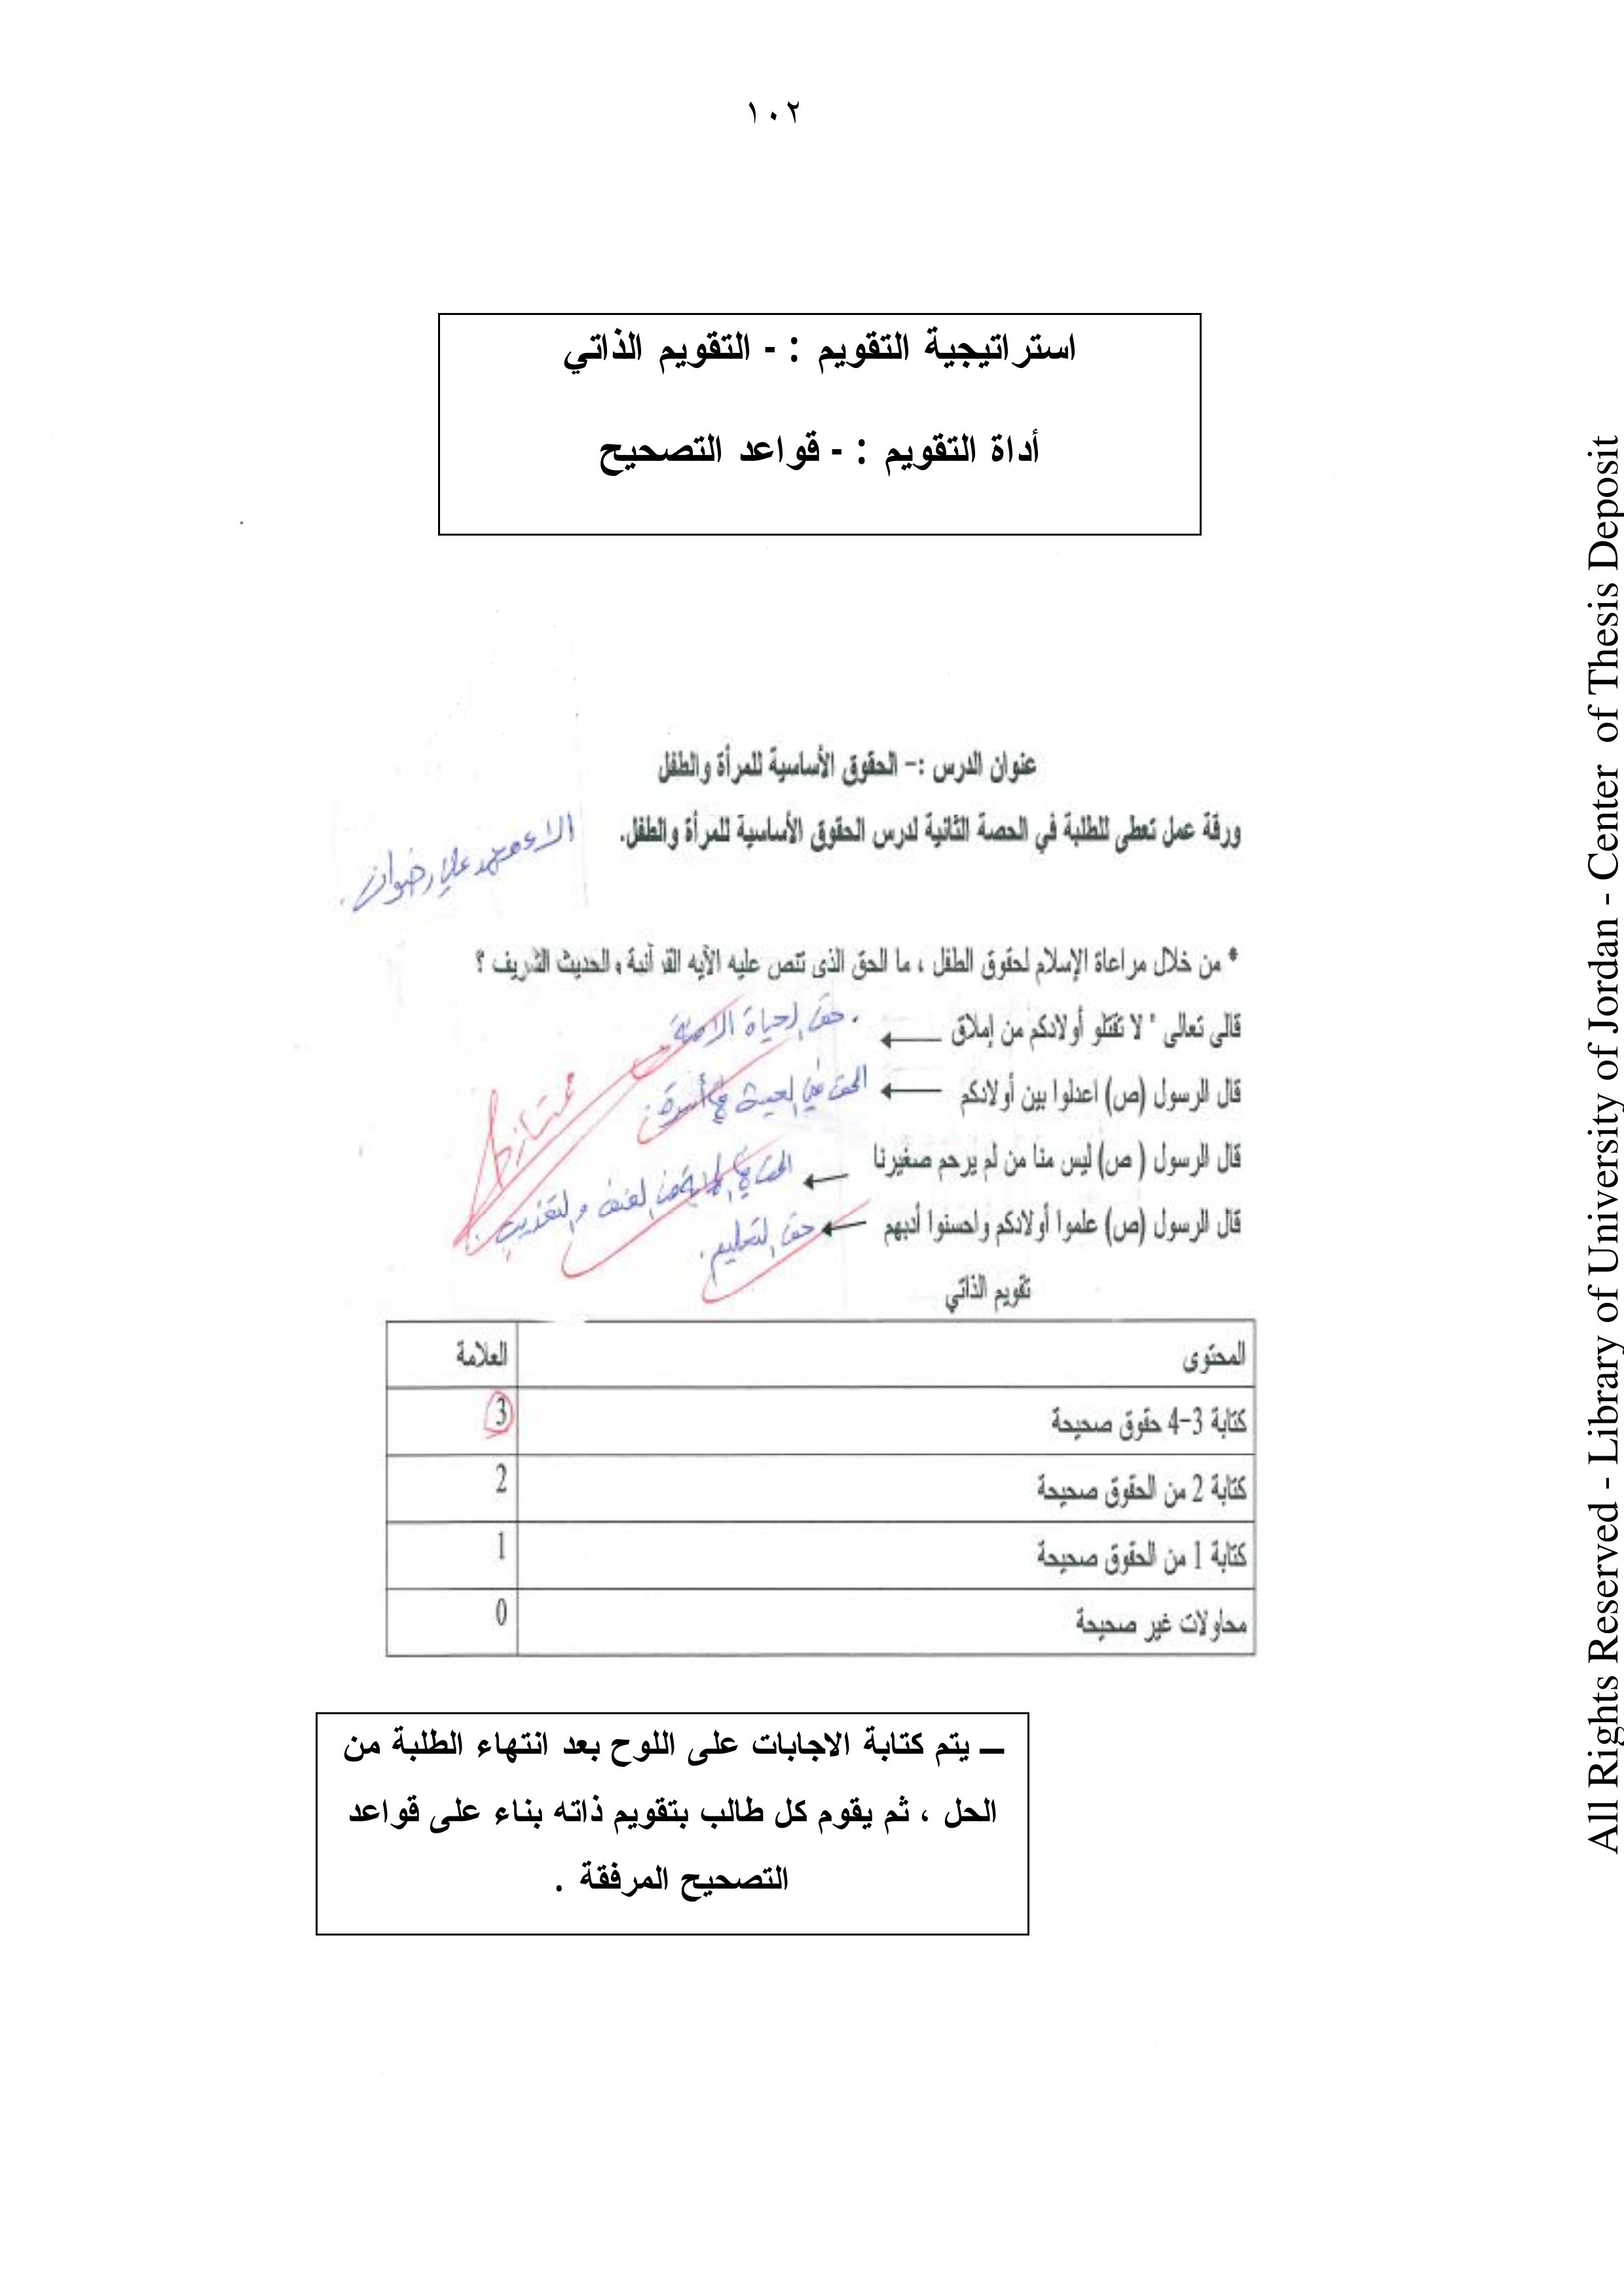 ١٠٢
استراتيجية التقويم : - التقويم الذاتي
أداة التقويم : - قواعد التصحيح
عنوان الدرس :- الحقوق الأساسية للمرأة والطفل
ورقة عمل تعطى للطلبة في الحصة الثانية لدرس الحقوق الأساسية للمرأة والطفل.
الاء محمد علي رضوان.
* من خلال مراعاة الإسلام لحقوق الطفل ، ما الحق الذى تنص عليه الآيه القرآنية والحديث الشريف ؟
قالى تعالى " لا تقتلو أولادكم من إملاق ← حق الحياة
قال الرسول (ص) اعدلوا بين أولادكم ← الحق في العيش في أسرة
قال الرسول ( ص) ليس منا من لم يرحم صغيرنا ← الحق في الحماية من العنف والتعذيب
قال الرسول (ص) علموا أولادكم واحسنوا أدبهم ← حق التعليم.
ممتاز
تقويم الذاتي
المحتوى العلامة
كتابة 3-4 حقوق صحيحة 3
كتابة 2 من الحقوق صحيحة 2
كتابة 1 من الحقوق صحيحة 1
محاولات غير صحيحة 0
ــ يتم كتابة الاجابات على اللوح بعد انتهاء الطلبة من
الحل ، ثم يقوم كل طالب بتقويم ذاته بناء على قواعد
التصحيح المرفقة .
All Rights Reserved - Library of University of Jordan - Center of Thesis Deposit